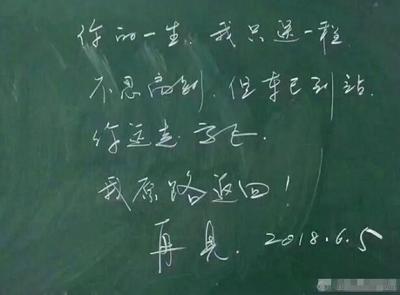 你的一生，我只送一程
不忍离别，但车已到站，
你远走高飞，
我原路返回！
再见．2018.6.5